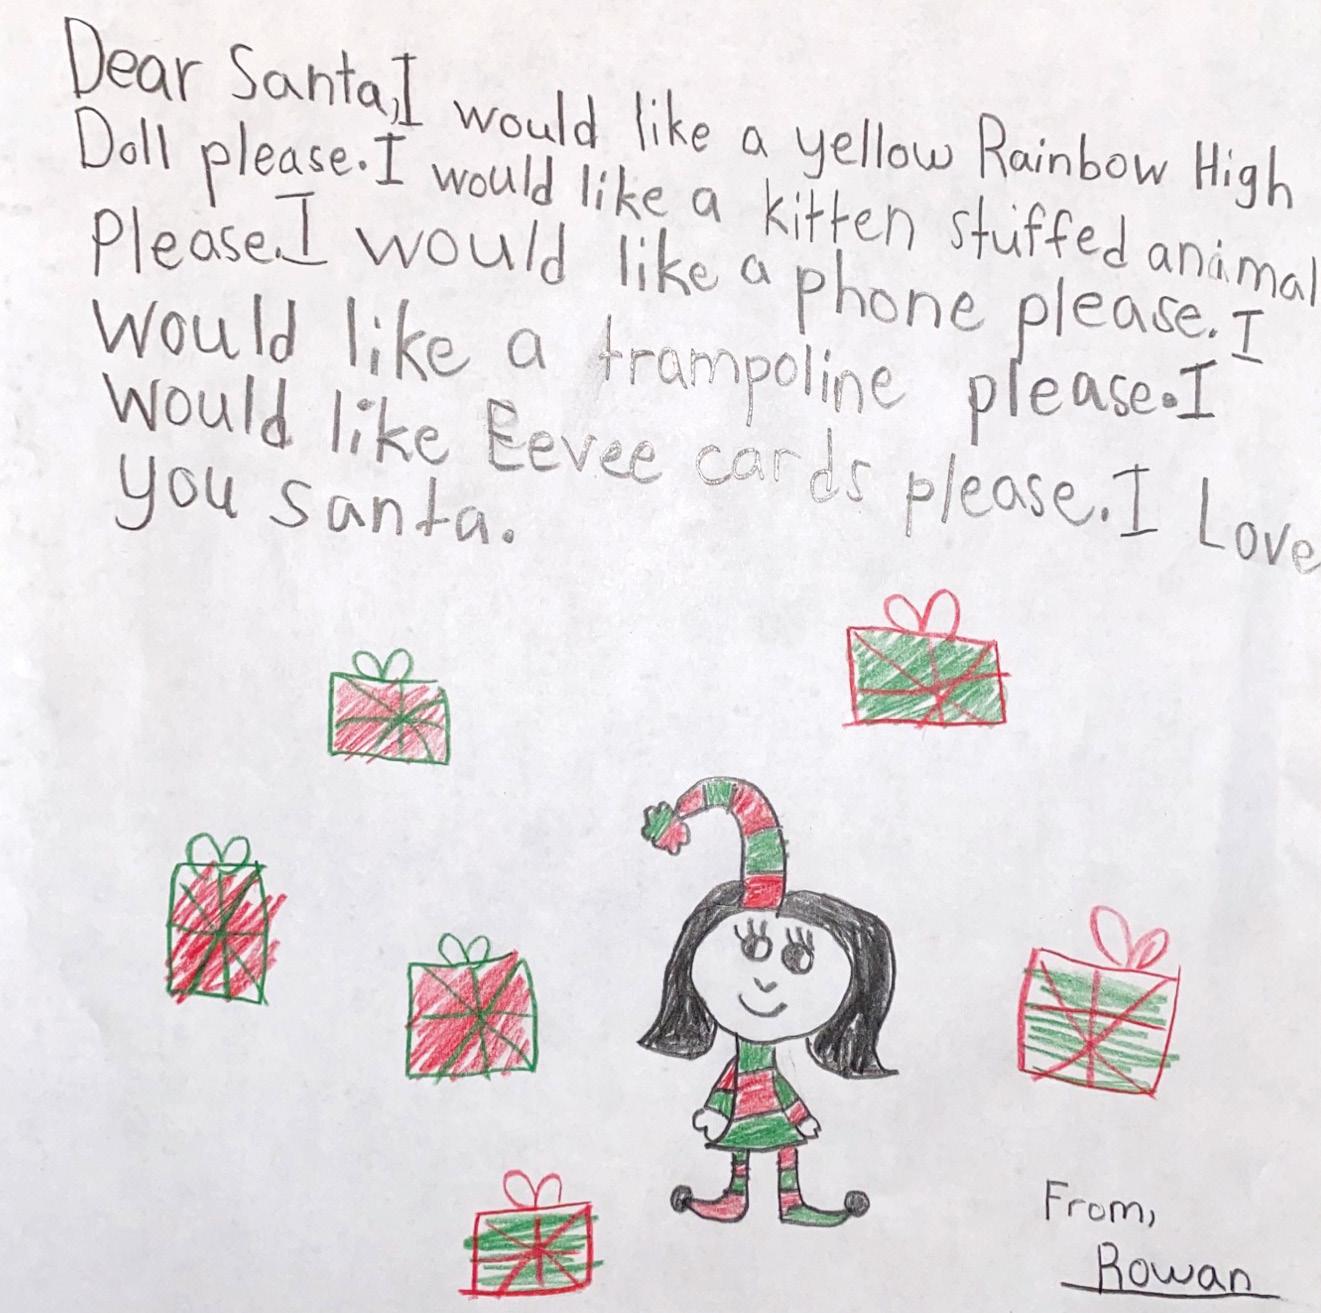 Dear Santa, I would like a yellow Rainbow High
Doll please. I would like a kitten stuffed animal
Please. I would like a phone please. I
would like a trampoline please. I
would like Eevee cards please. I Love
you Santa.
From,
Rowan